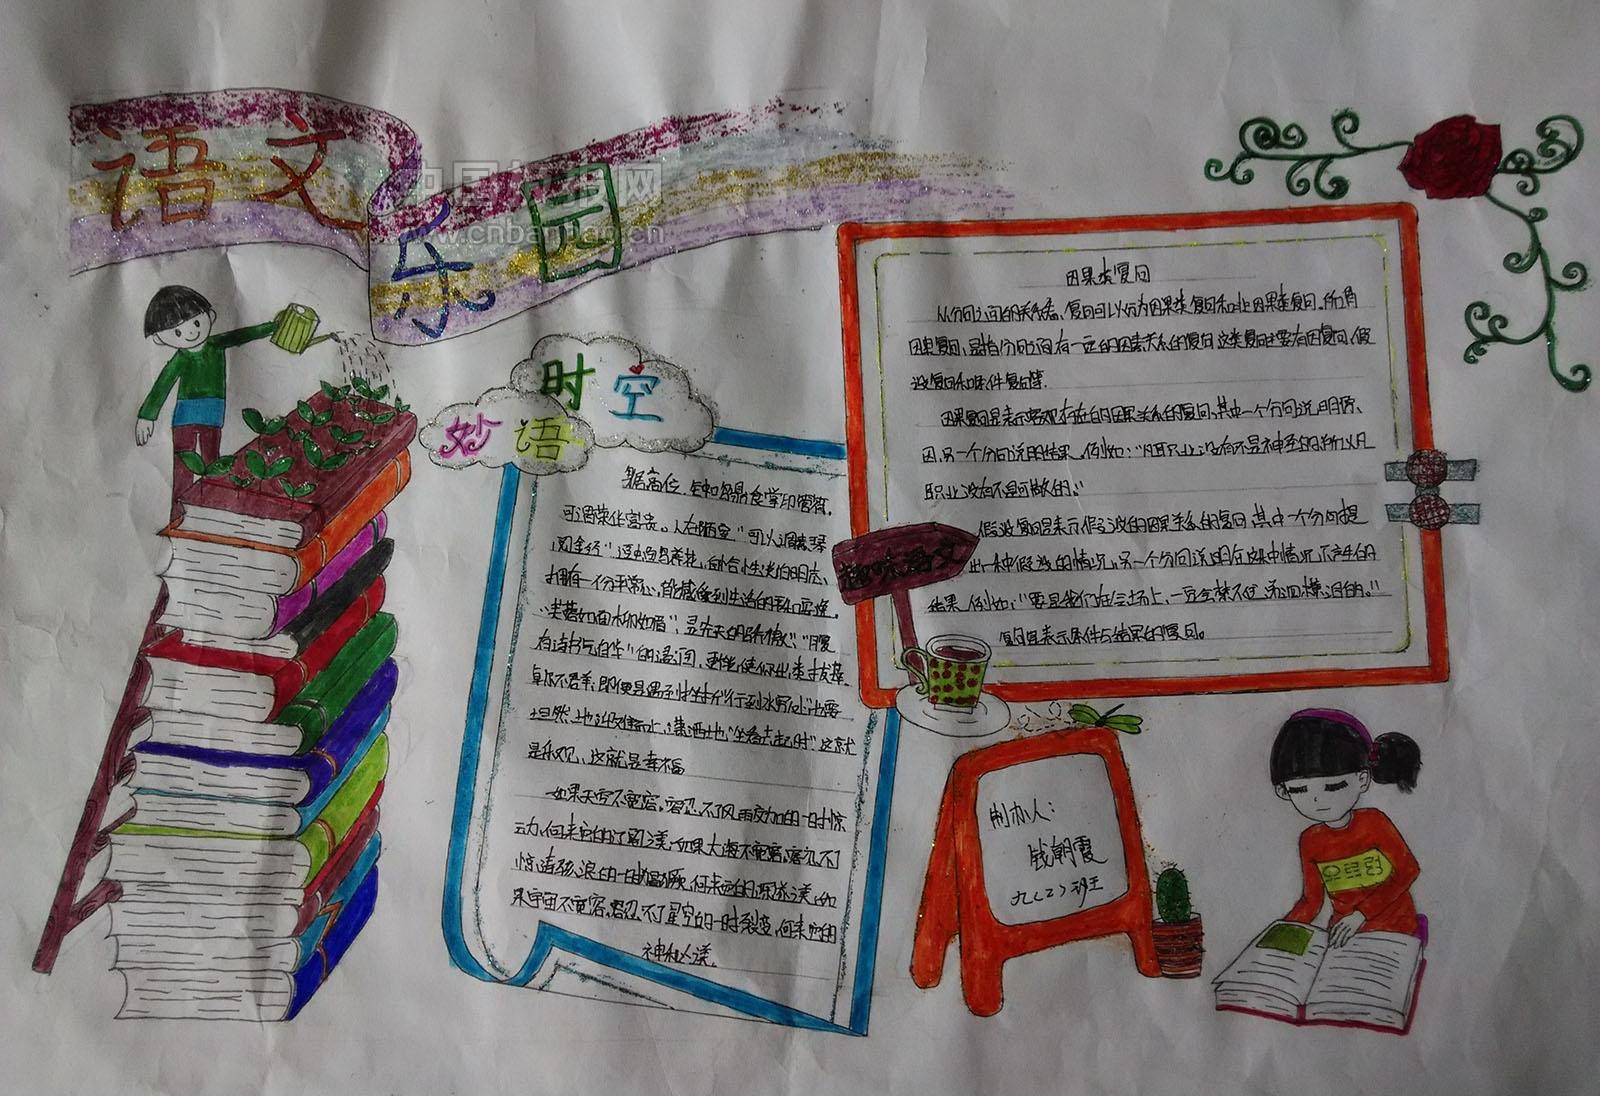 语文
乐园
中国板报网
www.cnbanbao.cn
时空
妙语
居高位、钟鸣鼎食掌印管符,
可谓荣华富贵。人在陋室“可以调素琴
阅金经”逗虫鸟养花,自恰性淡泊明志、
拥有一份平常心,能感受到生活的
“芙蓉如面柳如眉”,是先天的骄傲,“腹
有诗书气自华”的语词,更能使你出类拔萃
卓尔不群,即便是遇到挫折“行到水穷处”也要
坦然地,潇洒地“坐看云起时”这就
是乐观、这就是幸福
如果天空不宽容,容忍不了风雨雷加的一时惊
动,何来它的辽阔之美,如果大海不宽容,容忍不了
惊涛骇浪的一时猖獗,何来它的深沉之美,如
果宇宙不宽容,容忍不了星空的一时裂变,何来它的
神秘之美。
因果类复句
从分句之间的关系看、复句可以分为因果类复句和非因果类复句。所谓
因果复句、是指分句之间有一定的因果关系的复句这类复句主要有因果复句、假
设复句和条件复句等.
因果复句是表示客观存在的因果关系的复句,其中一个分句说明原、
因,另一个分句说明结果。例如:“凡职业没有不是神圣的所以凡
职业没有不是可敬的。”
假设复句是表示假设的因果关系的复句其中一个分句提
出一种假设的情况,另一个分句说明在这种情况下产生的
结果 例如:“要是我们在会场上,一定会禁不住涕泗横泪的。”
复句是表示条件与结果的复句。
趣味语文
制办人:
钱朝霞
九(2)班